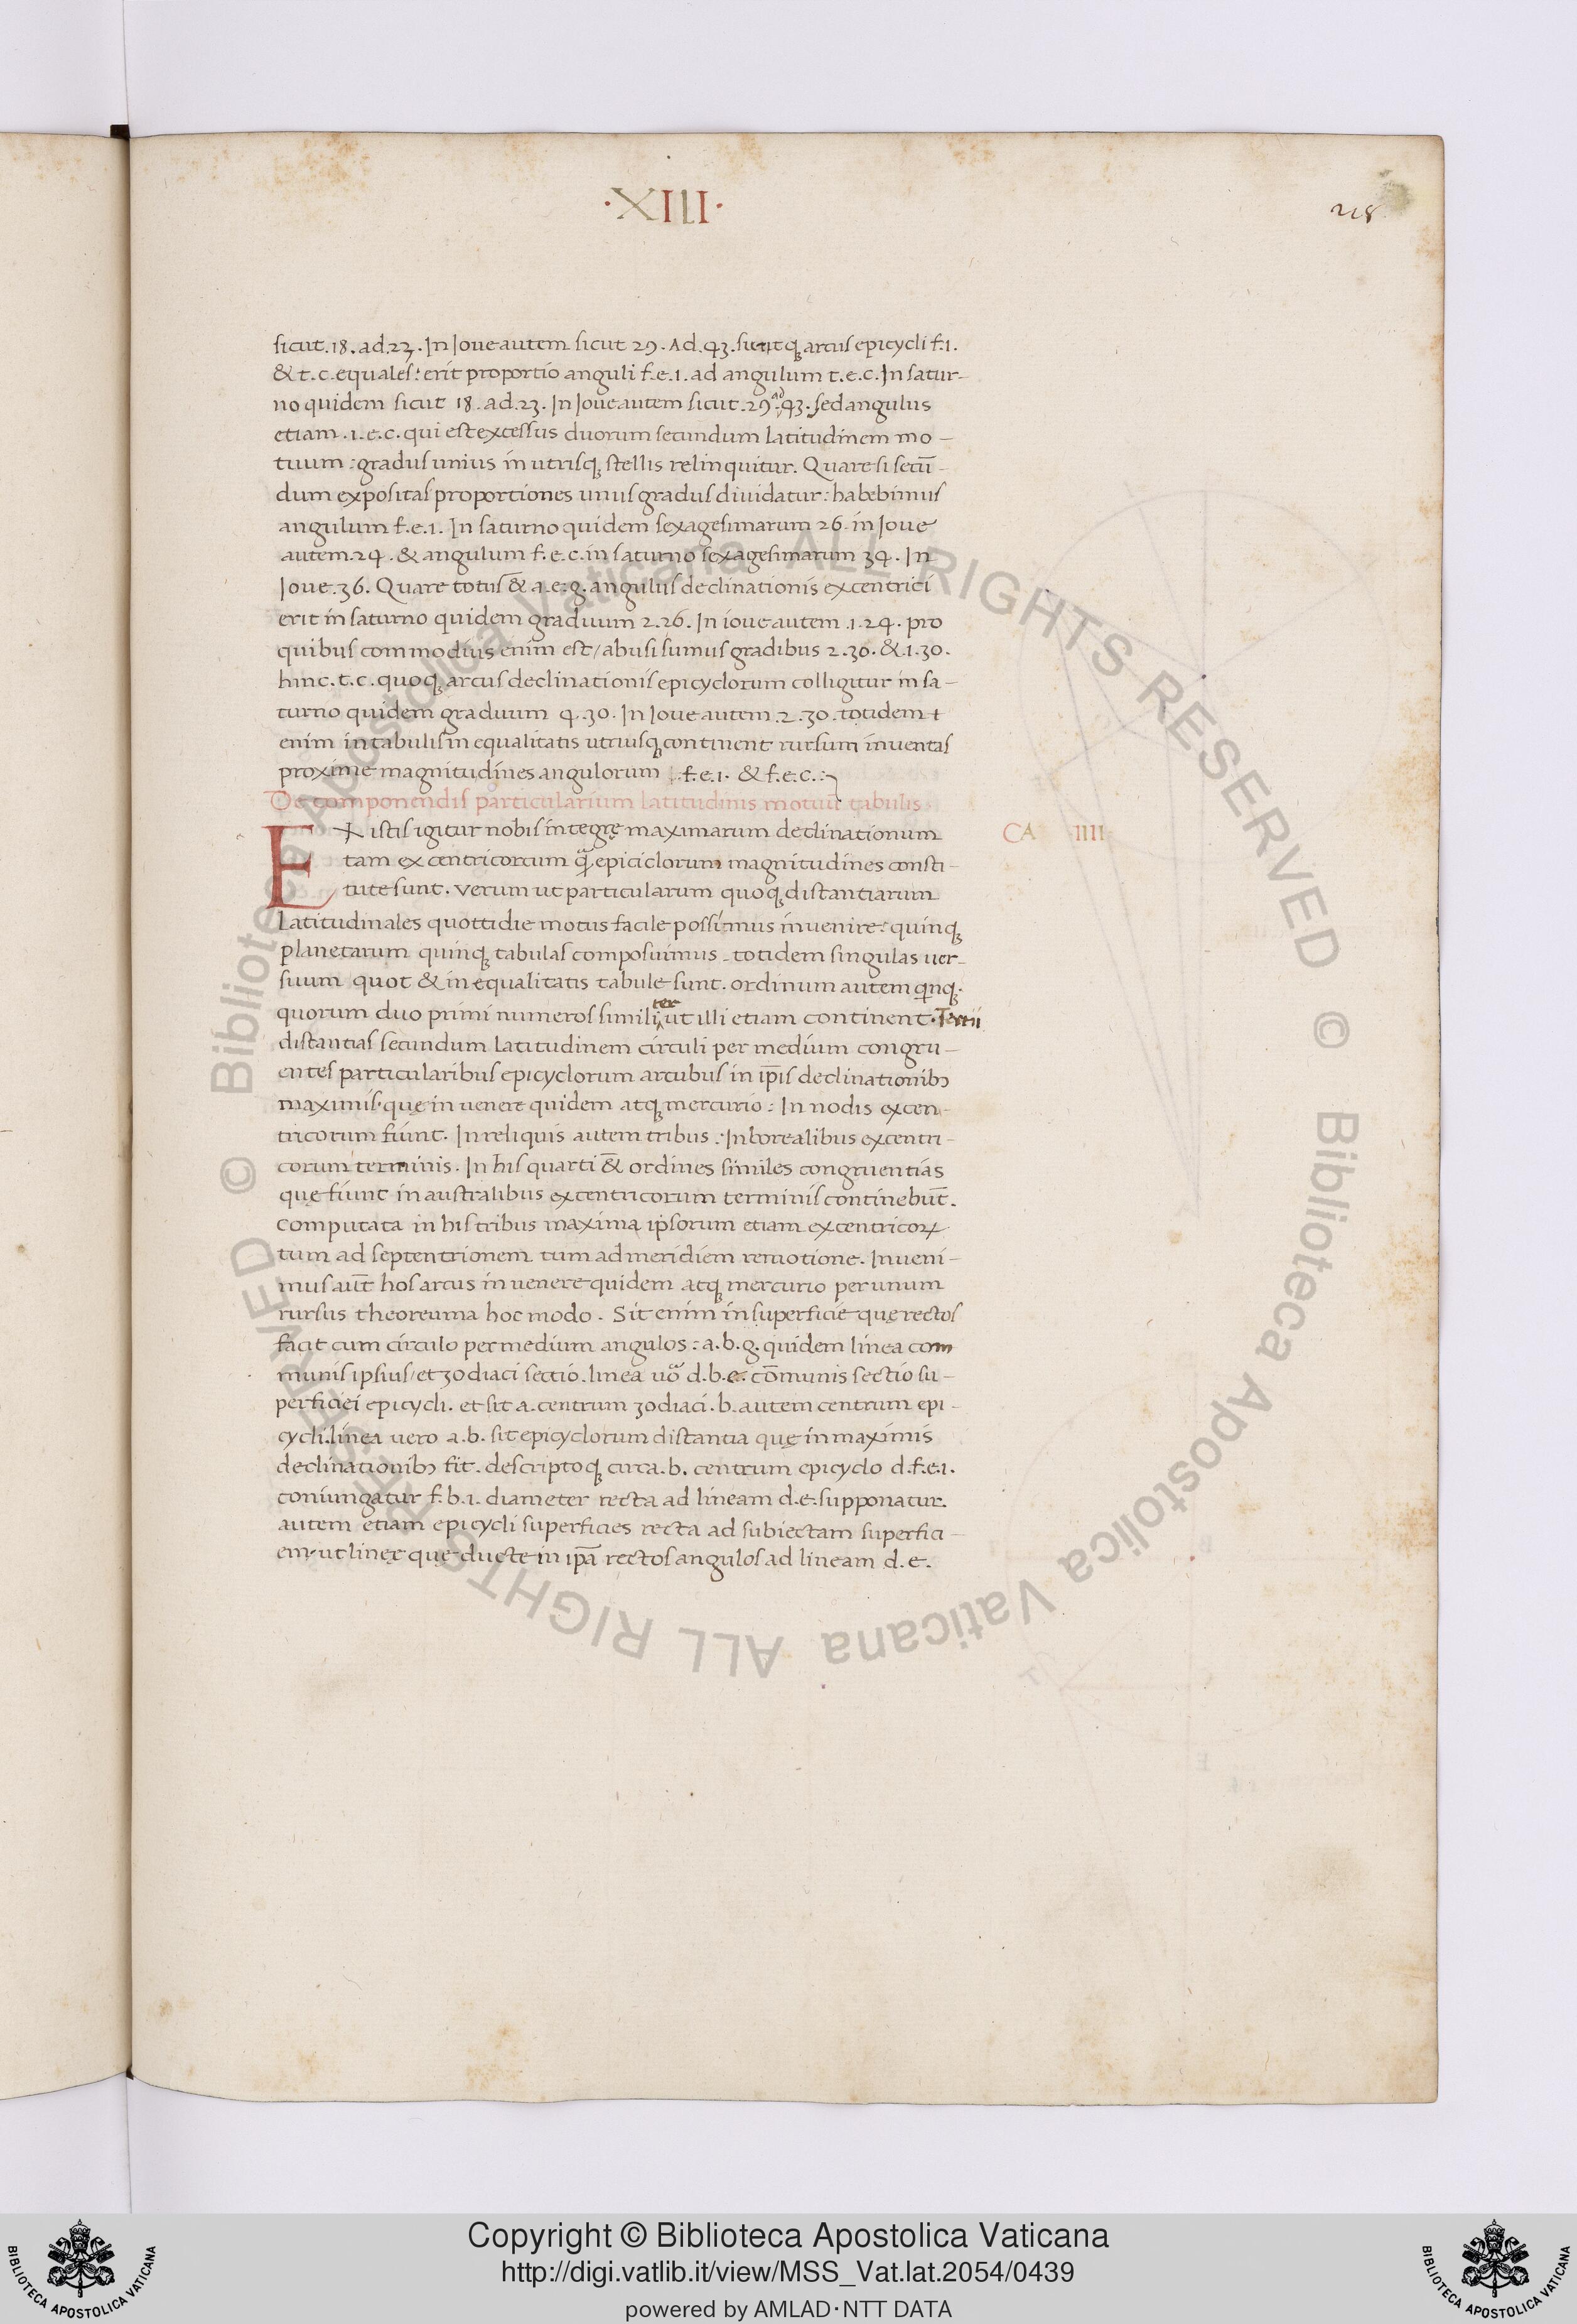 ·XIII·
218
sicut.18.ad.23.In Ioue autem sicut 29.Ad.43.suntqȝ arcus epicycli f.1.
& t.c.equales: erit proportio anguli f.e.1.ad angulum t.e.c.In satur-
no quidem sicut 18.ad.23.In Ioue autem sicut.29.ad.43.sed angulus
etiam.1.e.c.qui est excessus duorum secundum latitudinem mo-
tuum:gradus unius in utrisqȝ stellis relinquitur. Quare si secū-
dum expositas proportiones unus gradus diuidatur: habebimus
angulum f.e.1. In saturno quidem sexagesimarum 26. in Ioue
autem.24. & angulum f.e.c.in saturno sexagesimarum 34. In
Ioue.36. Quare totus & a.e.g.angulus declinationis excentrici
erit in saturno quidem graduum 2.26. In ioue autem.1.24. pro
quibus commodius enim est/abusi sumus gradibus 2.30.&.1.30.
hinc.t.c.quoqȝ arcus declinationis epicyclorum colligitur in sa-
turno quidem graduum 4.30. In Ioue autem.2.30.totidem
enim in tabulis inequalitatis utriusqȝ continent rursum inuentas
proxime magnitudines angulorum f.e.1. & f.e.c.:
De componendis particularium latitudinis motuū tabulis
EX istis igitur nobis integrę maximarum declinationum
CA IIII
tam excentricorum qȝ epiciclorum magnitudines consti-
tute sunt. verum ut particularum quoqȝ distantiarum
Latitudinales quottidie motus facile possimus inuenire: quinqȝ
planetarum quinqȝ tabulas composuimus. totidem singulas uer-
suum quot & inequalitatis tabule sunt. ordinum autem qinqȝ.
quorum duo primi numeros similiter ut illi etiam continent. Tertii
distantias secundum latitudinem circuli per medium congru-
entes particularibus epicyclorum arcubus in ip̄is declinationibꝰ
maximis.quę in uenere quidem atqȝ mercurio: In nodis excen-
tricorum fiunt. In reliquis autem tribus: In borealibus excentri-
corum terminis. In his quarti & ordines similes congruentias
quę fiunt in australibus excentricorum terminis continebūt.
computata in his tribus maxima ipsorum etiam excentricoꝝ
tum ad septentrionem tum ad meridiem remotione. Inueni-
mus aūt hos arcus in uenere quidem atqȝ mercurio per unum
rursus theoreuma hoc modo. Sit enim in superficie quę rectos
facit cum circulo per medium angulos: a.b.g.quidem linea com
munis ipsius/et zodiaci sectio.linea uō d.b.e. cōmunis sectio su-
perficiei epicycli. et sit a.centrum zodiaci.b.autem centrum epi-
cycli.linea uero a.b.sit epicyclorum distantia quę in maximis
declinationibꝰ fit. descriptoqȝ circa.b.centrum epicyclo d.f.e.1.
coniungatur f.b.1. diameter recta ad lineam d.e.supponatur.
autem etiam epicycli superficies recta ad subiectam superfici-
em.ut lineę que ducte in ip̄a rectos angulos ad lineam d.e.
© Biblioteca Apostolica Vaticana ALL RIGHTS RESERVED © Biblioteca Apostolica Vaticana ALL RIGHTS RESERVED
BIBLIOTECA APOSTOLICA VATICANA
Copyright © Biblioteca Apostolica Vaticana
http://digi.vatlib.it/view/MSS_Vat.lat.2054/0439
powered by AMLAD·NTT DATA
BIBLIOTECA APOSTOLICA VATICANA